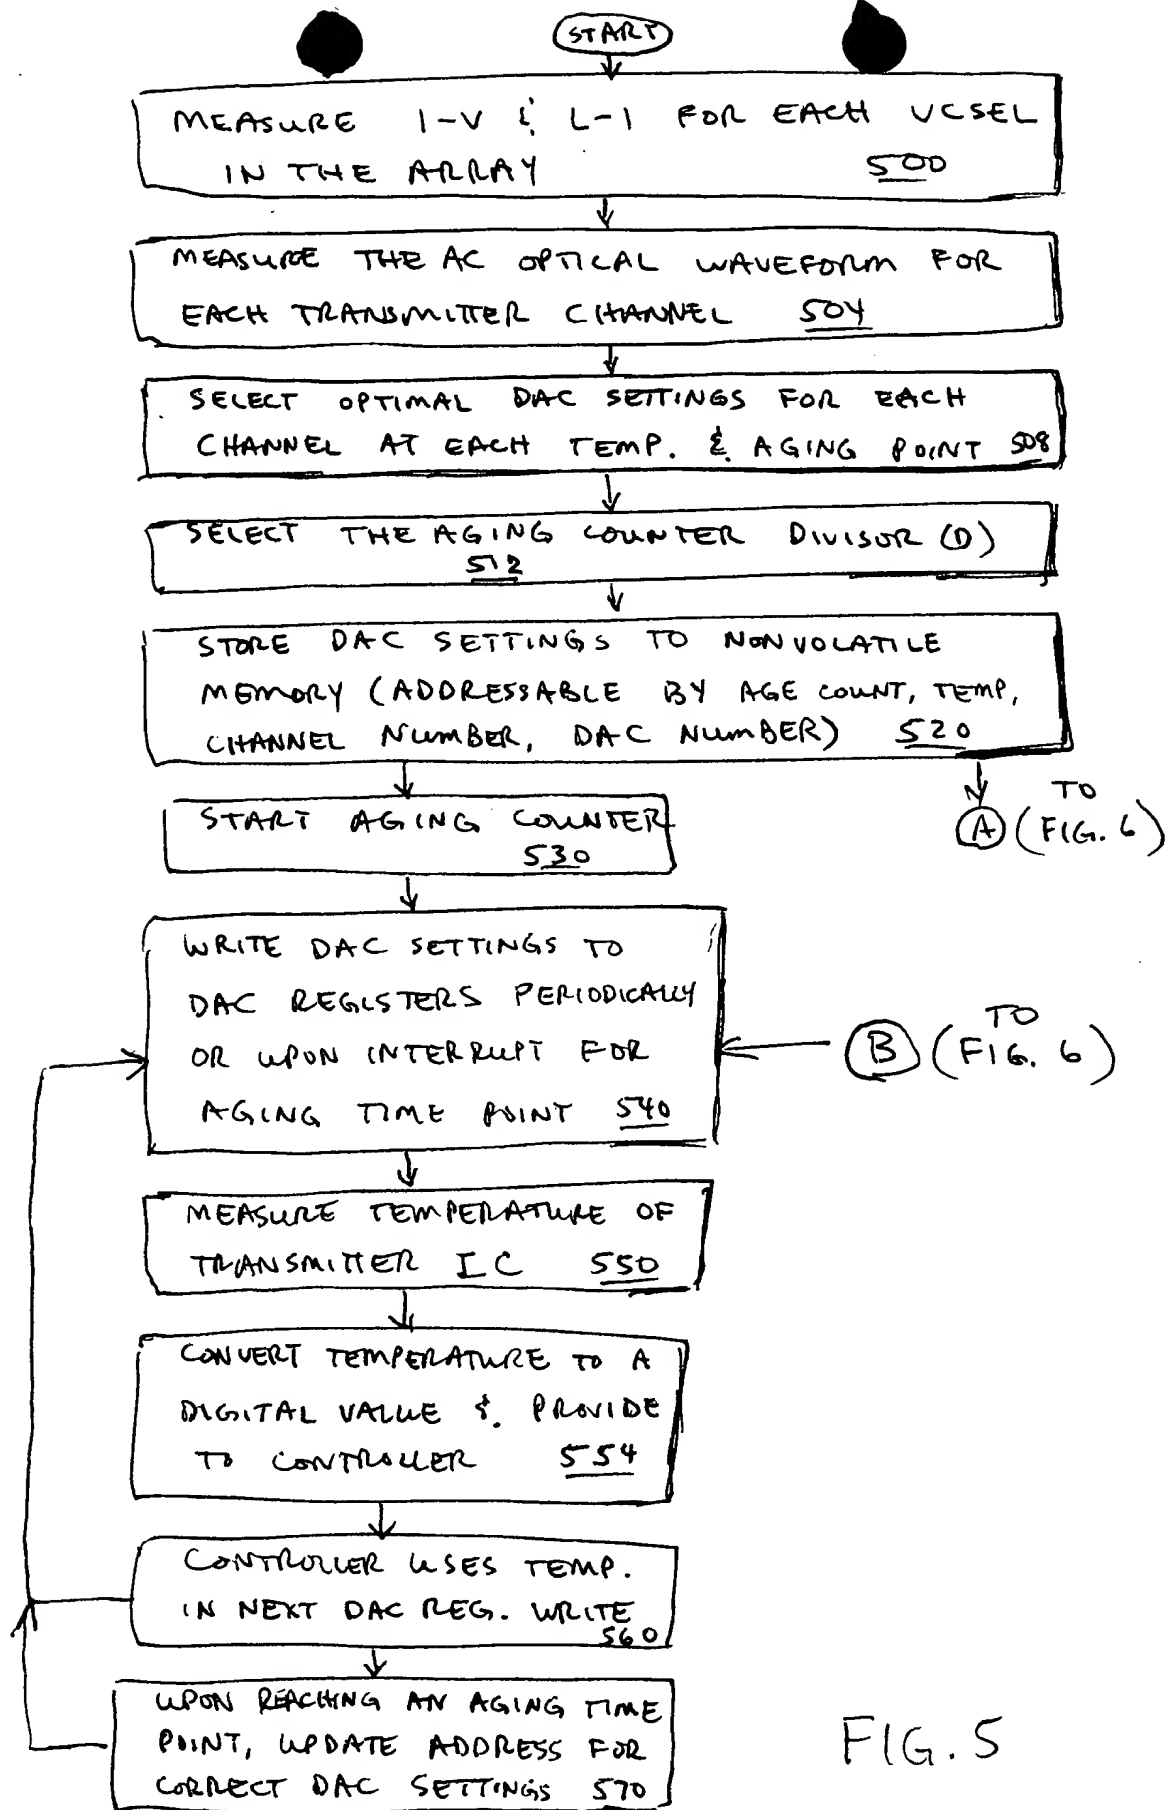 START
MEASURE I-V & L-I FOR EACH VCSEL
IN THE ARRAY 500
MEASURE THE AC OPTICAL WAVEFORM FOR
EACH TRANSMITTER CHANNEL 504
SELECT OPTIMAL DAC SETTINGS FOR EACH
CHANNEL AT EACH TEMP. & AGING POINT 508
SELECT THE AGING COUNTER DIVISOR (D)
512
STORE DAC SETTINGS TO NONVOLATILE
MEMORY (ADDRESSABLE BY AGE COUNT, TEMP,
CHANNEL NUMBER, DAC NUMBER) 520
START AGING COUNTER
530
TO
A (FIG. 6)
WRITE DAC SETTINGS TO
DAC REGISTERS PERIODICALLY
OR UPON INTERRUPT FOR
AGING TIME POINT 540
TO
B (FIG. 6)
MEASURE TEMPERATURE OF
TRANSMITTER IC 550
CONVERT TEMPERATURE TO A
DIGITAL VALUE & PROVIDE
TO CONTROLLER 554
CONTROLLER USES TEMP.
IN NEXT DAC REG. WRITE
560
UPON REACHING AN AGING TIME
POINT, UPDATE ADDRESS FOR
CORRECT DAC SETTINGS 570
FIG. 5